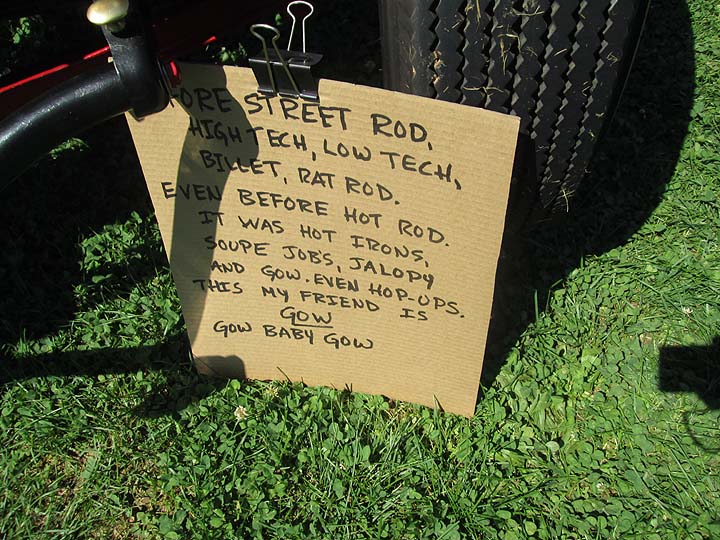 FORE STREET ROD,
HIGH TECH, LOW TECH,
BILLET, RAT ROD.
EVEN BEFORE HOT ROD.
IT WAS HOT IRONS,
SOUPE JOBS, JALOPY
AND GOW. EVEN HOP-UPS.
THIS MY FRIEND IS
GOW
GOW BABY GOW